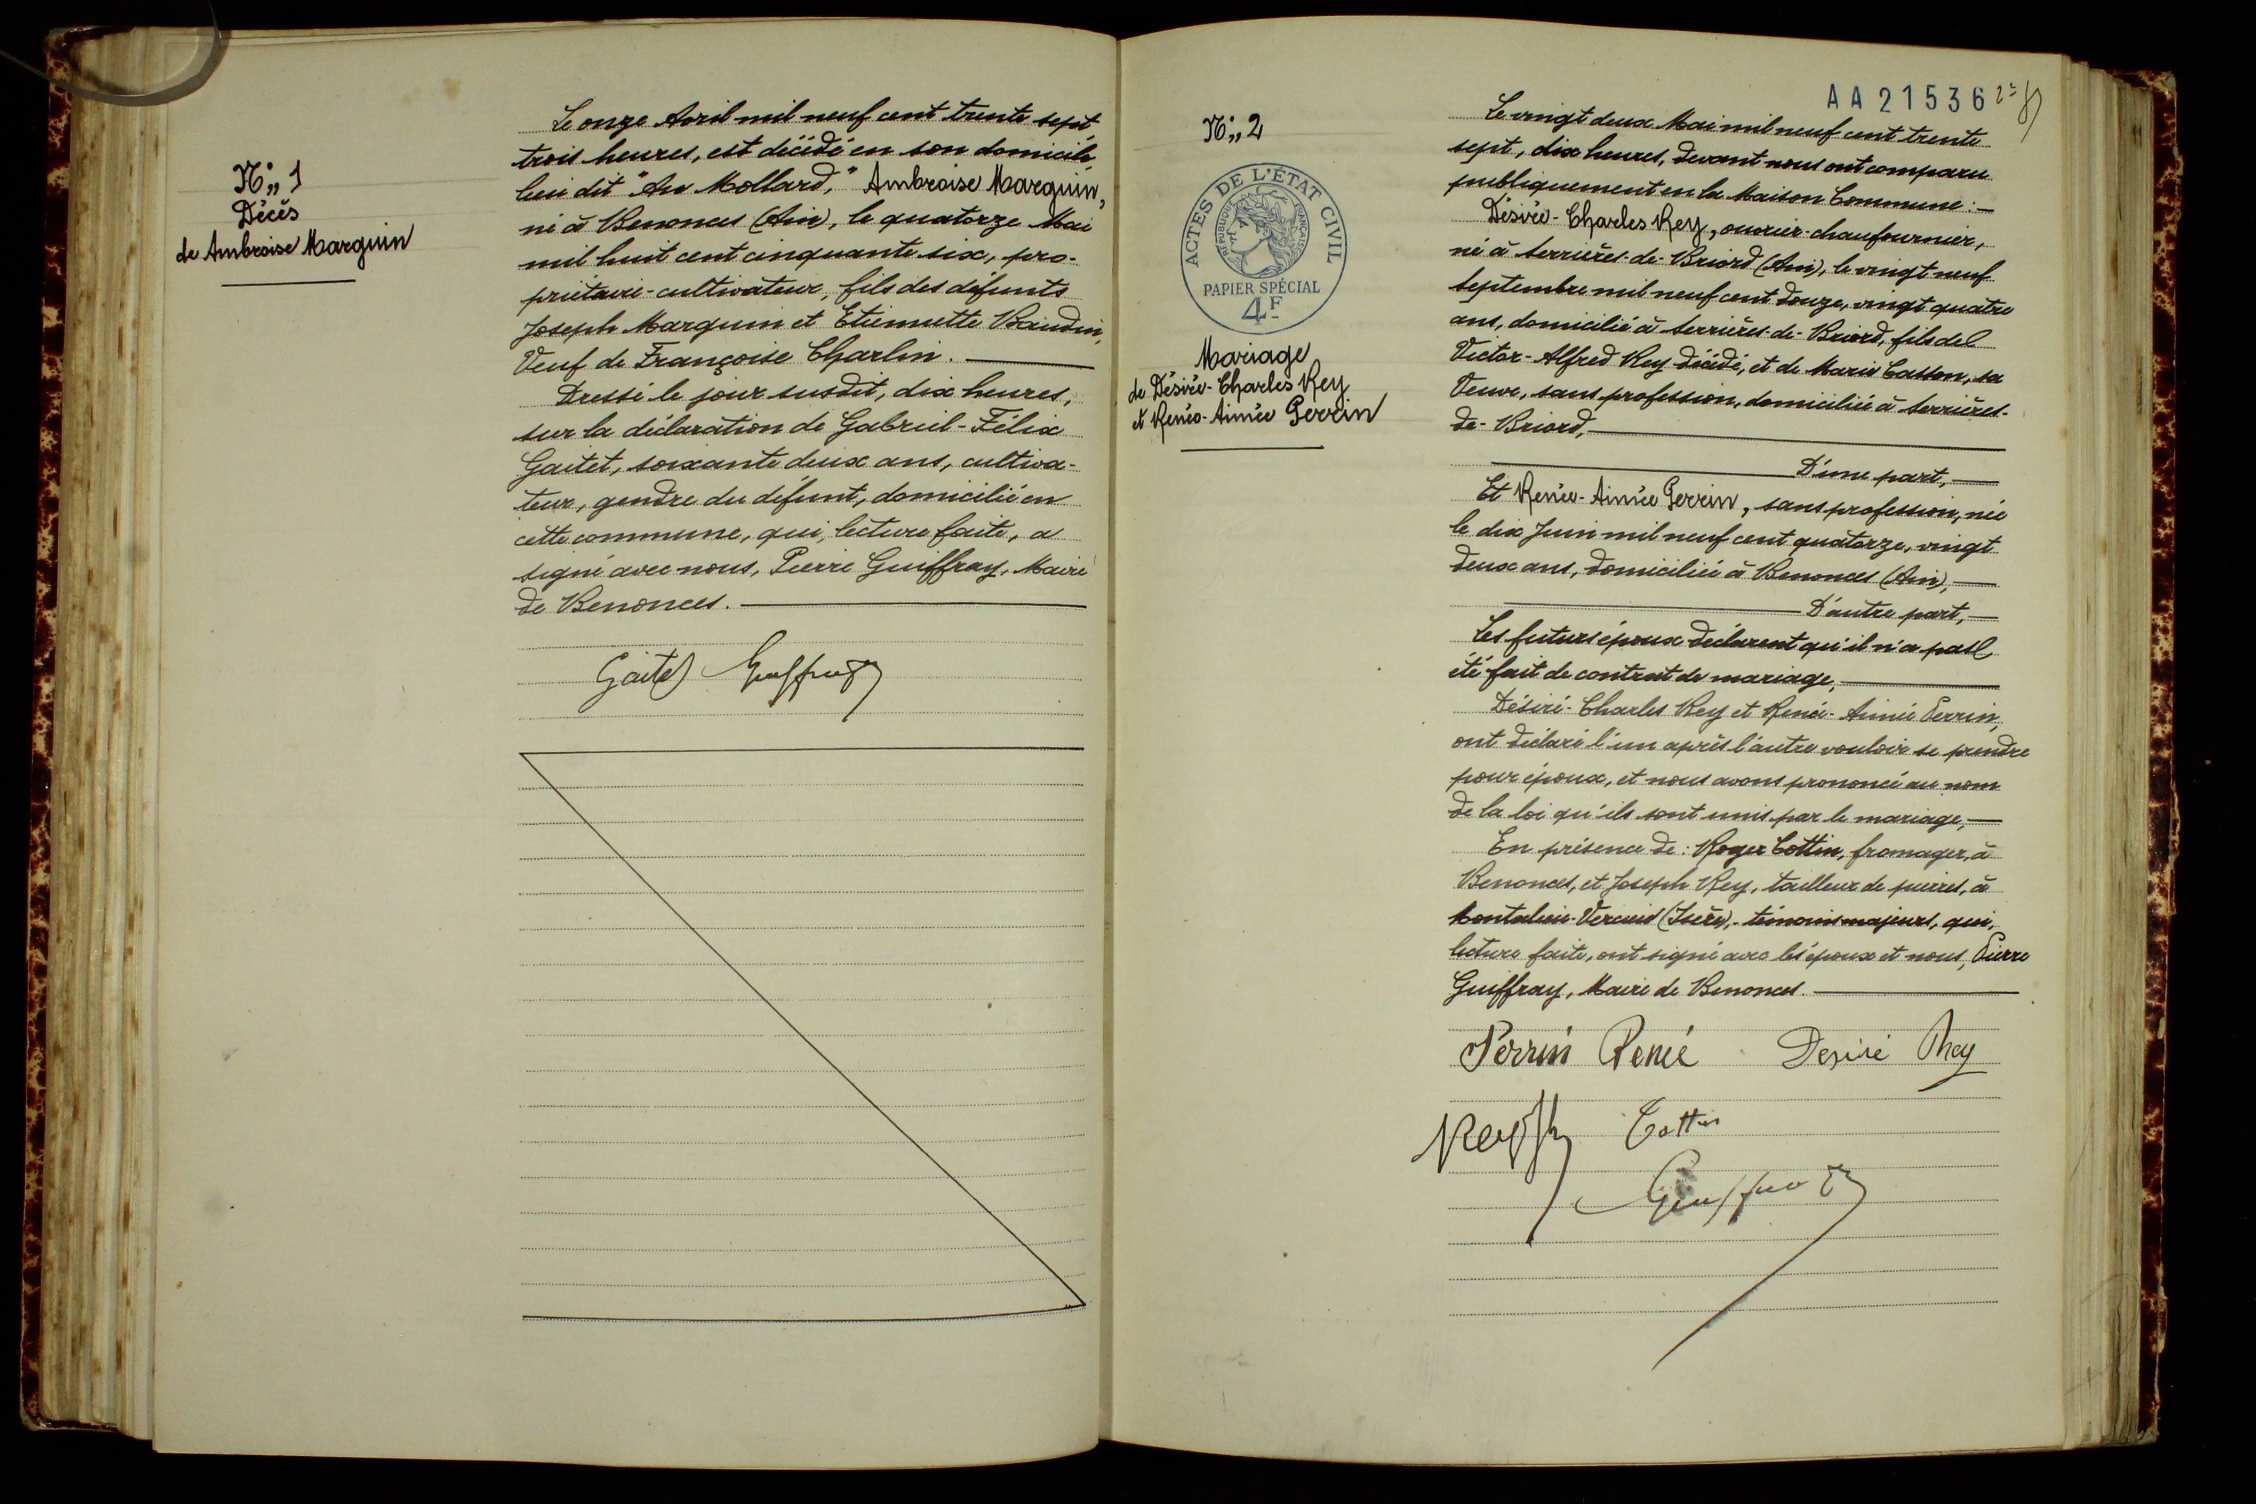 N° 1
Décès
de Ambroise Marguin
Le onze Avril mil neuf cent trente sept
trois heures, est décédé en son domicile
lieu dit "Au Mollard," Ambroise Marguin,
né à Benonces (Ain), le quatorze Mai
mil huit cent cinquante six, pro-
priétaire-cultivateur, fils des défunts
Joseph Marguin et Etiennette Baudin,
Veuf de Françoise Charlin.
Dressé le jour susdit, dix heures,
sur la déclaration de Gabriel-Félix
Gaitet, soixante deux ans, cultiva-
teur, gendre du défunt, domicilié en
cette commune, qui, lecture faite, a
signé avec nous, Pierre Guiffray, Maire
de Benonces.
Gaitet Guiffray
AA21536
N° 2
ACTES DE L'ÉTAT CIVIL
RÉPUBLIQUE FRANÇAISE
PAPIER SPÉCIAL
4F
Mariage
de Désiré-Charles Rey
et Renée-Aimée Perrin
Le vingt deux Mai mil neuf cent trente
sept, dix heures, devant nous ont comparu
publiquement en la Maison Commune:
Désiré-Charles Rey, ouvrier-chaufournier,
né à Serrières-de-Briord (Ain), le vingt neuf
septembre mil neuf cent douze, vingt quatre
ans, domicilié à Serrières-de-Briord, fils de
Victor-Alfred Rey décédé, et de Marie Casson, sa
Veuve, sans profession, domiciliée à Serrières-
de-Briord,
D'une part,
Et Renée-Aimée Perrin, sans profession, née
le dix Juin mil neuf cent quatorze, vingt
deux ans, domiciliée à Benonces (Ain),
D'autre part,
Les futurs époux déclarent qu'il n'a pas
été fait de contrat de mariage,
Désiré-Charles Rey et Renée-Aimée Perrin,
ont déclaré l'un après l'autre vouloir se prendre
pour époux, et nous avons prononcé au nom
de la loi qu'ils sont unis par le mariage,
En présence de: Roger Cottin, fromager, à
Benonces, et Joseph Rey, tailleur de pierres, à
Montalieu-Vercieu (Isère), témoins majeurs, qui,
lecture faite, ont signé avec les époux et nous, Pierre
Guiffray, Maire de Benonces.
Perrin Renée Desiré Rey
Rey Jh Cottin
Guiffray